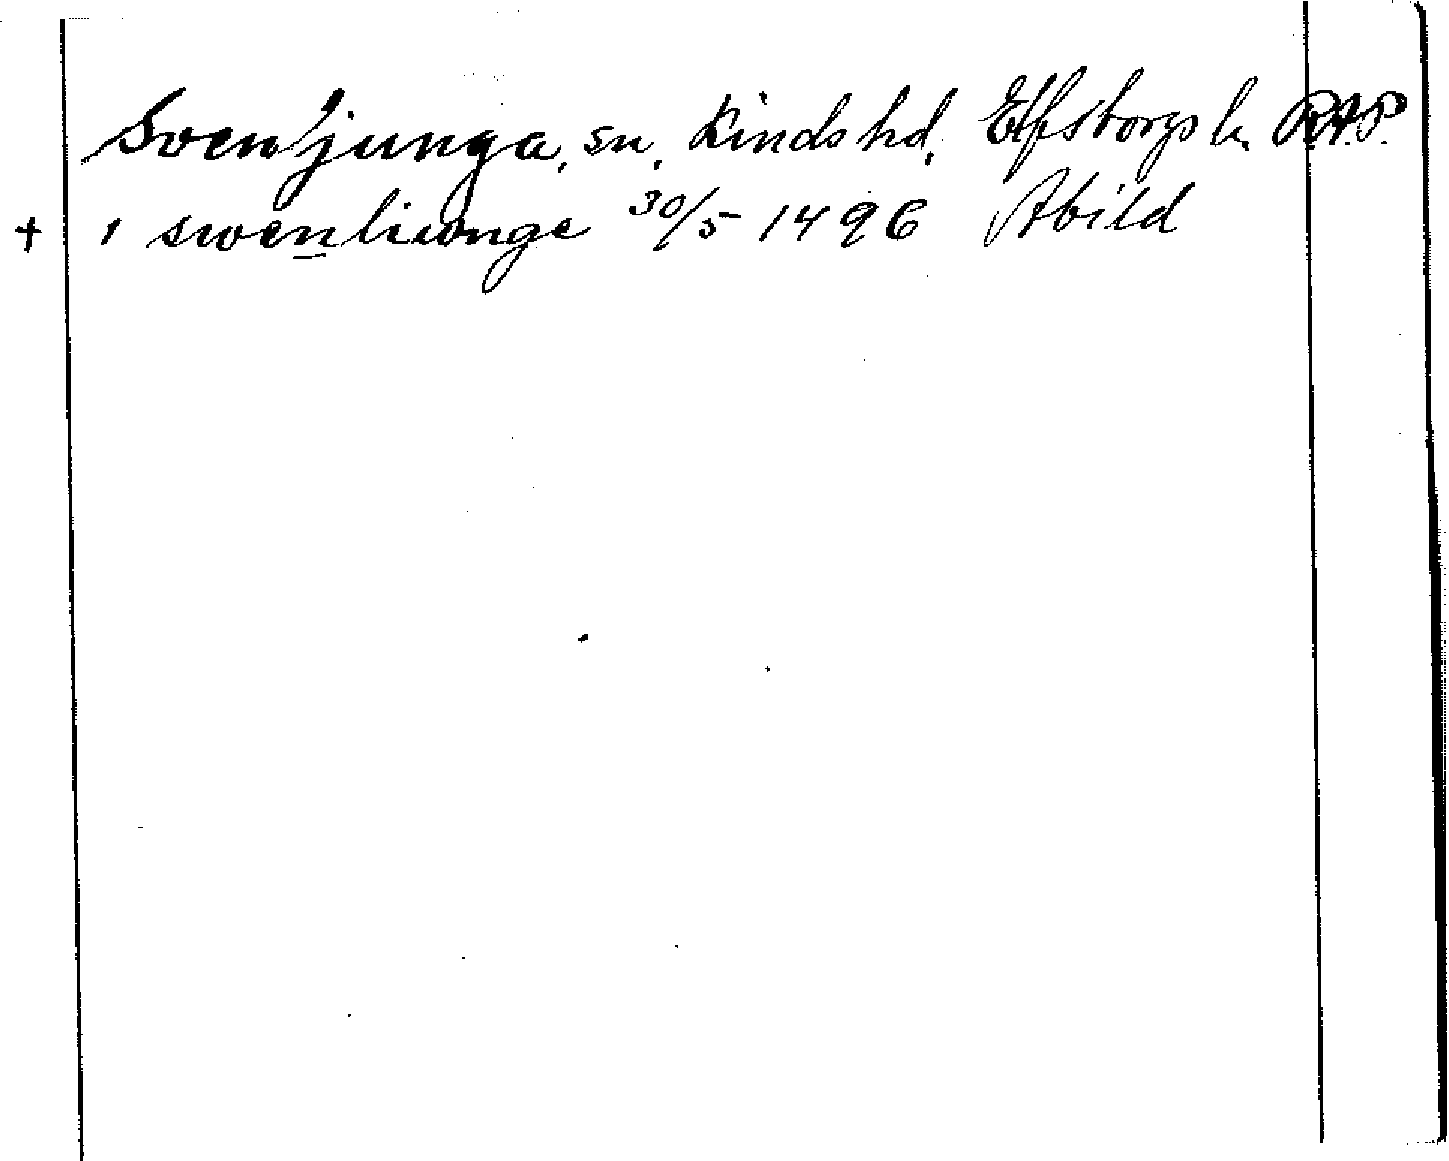 Svenljunga, sn, Kinds hd, Elfsborgs l. RAP.
+ i swenliunge 30/5 1496 Abild